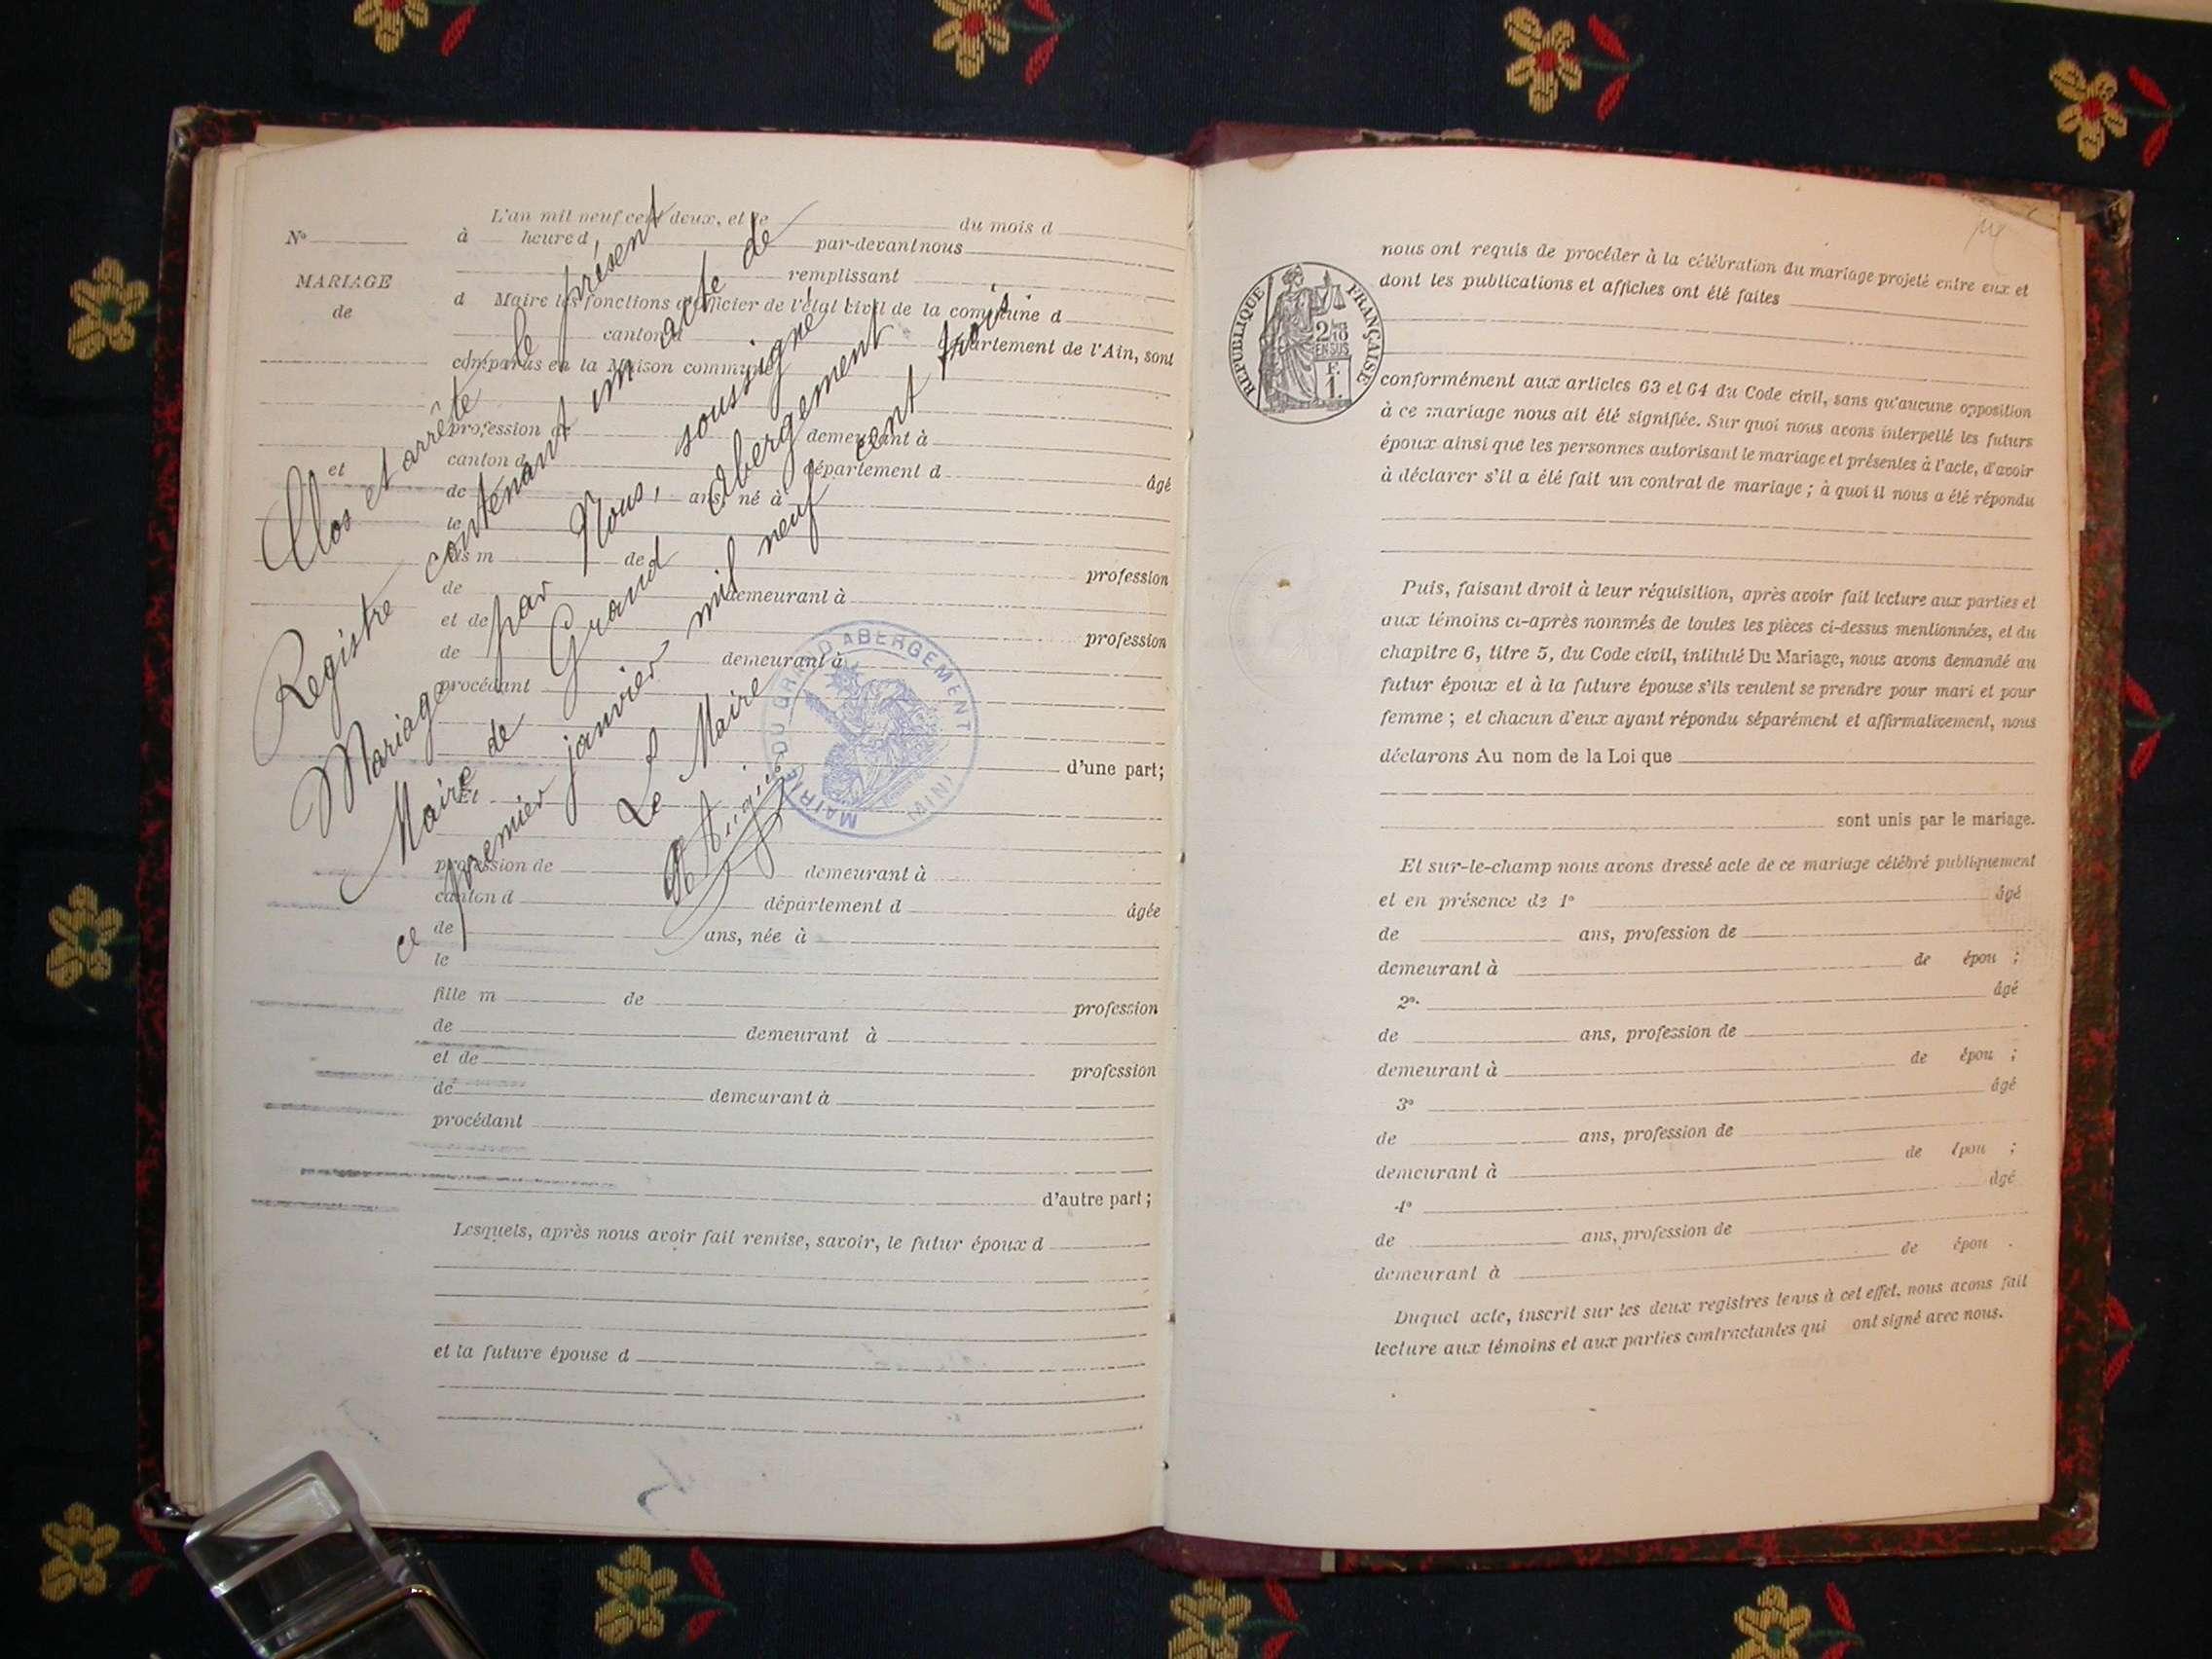 L'an mil neuf cent deux, et le du mois d
N° à heure d par-devant nous
MARIAGE remplissant
de d Maire les fonctions d'officier de l'état civil de la commune d
canton d département de l'Ain, sont
comparus en la Maison commune
profession de demeurant à
et canton d département d âgé
de ans, né à
le
fils m de profession
de demeurant à
et de profession
de demeurant à
procédant
d'une part;
Et
profession de demeurant à
canton d département d âgée
de ans, née à
le
fille m de profession
de demeurant à
et de profession
de demeurant à
procédant
d'autre part;
Lesquels, après nous avoir fait remise, savoir, le futur époux d
et la future épouse d
Clos et arrêté le présent
Registre contenant un acte de
Mariage par Nous, soussigné
Maire de Grand Abergement
ce premier janvier mil neuf cent trois
Le Maire
MAIRIE DU GRAND ABERGEMENT
(AIN)
nous ont requis de procéder à la célébration du mariage projeté entre eux et
dont les publications et affiches ont été faites
RÉPUBLIQUE FRANÇAISE
2/10
EN SUS
F.
1.
conformément aux articles 63 et 64 du Code civil, sans qu'aucune opposition
à ce mariage nous ait été signifiée. Sur quoi nous avons interpellé les futurs
époux ainsi que les personnes autorisant le mariage et présentes à l'acte, d'avoir
à déclarer s'il a été fait un contrat de mariage ; à quoi il nous a été répondu
Puis, faisant droit à leur réquisition, après avoir fait lecture aux parties et
aux témoins ci-après nommés de toutes les pièces ci-dessus mentionnées, et du
chapitre 6, titre 5, du Code civil, intitulé Du Mariage, nous avons demandé au
futur époux et à la future épouse s'ils veulent se prendre pour mari et pour
femme ; et chacun d'eux ayant répondu séparément et affirmativement, nous
déclarons Au nom de la Loi que
sont unis par le mariage.
Et sur-le-champ nous avons dressé acte de ce mariage célébré publiquement
et en présence de 1° âgé
de ans, profession de
demeurant à de épou ;
2°. âgé
de ans, profession de
demeurant à de épou ;
3° âgé
de ans, profession de
demeurant à de épou ;
4° âgé
de ans, profession de
demeurant à de épou .
Duquel acte, inscrit sur les deux registres tenus à cet effet, nous avons fait
lecture aux témoins et aux parties contractantes qui ont signé avec nous.